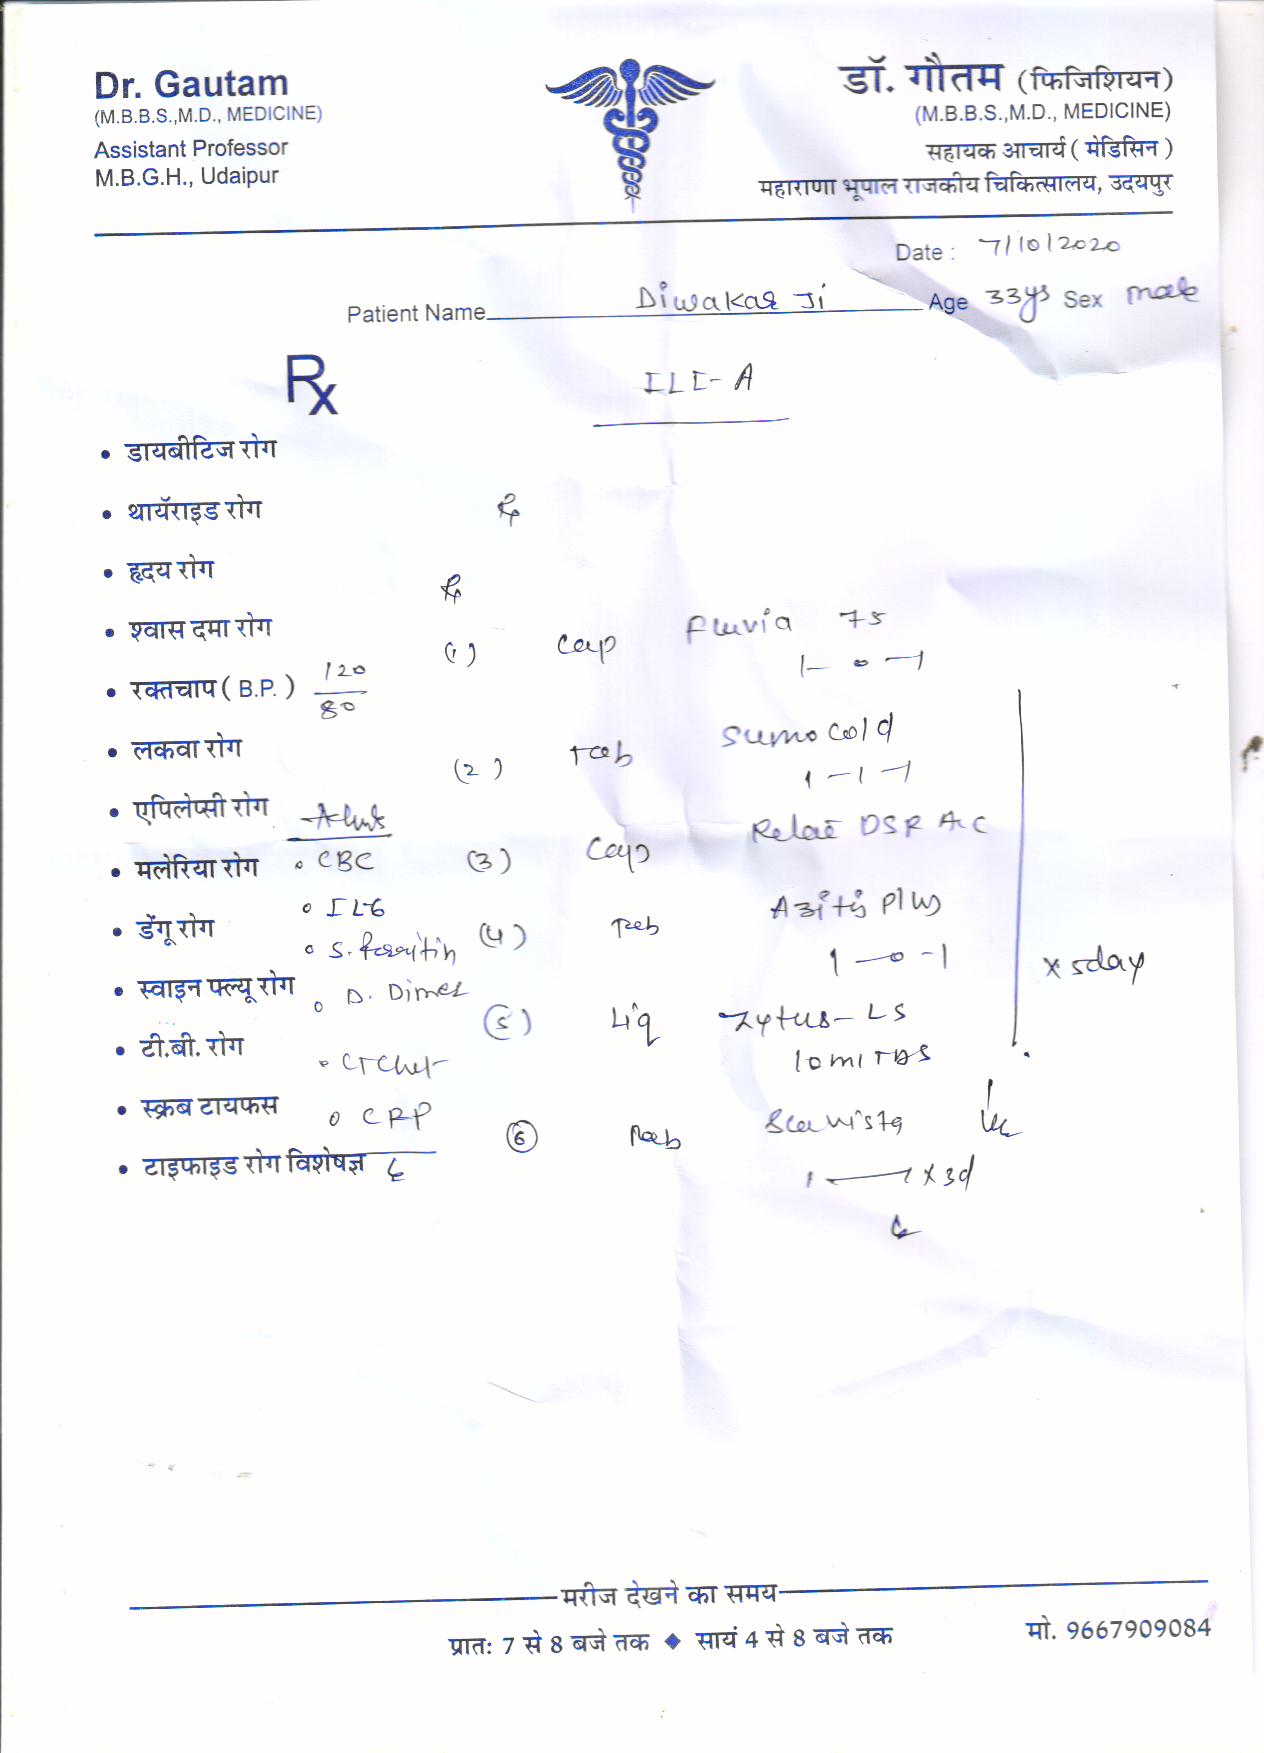 Dr. Gautam
(M.B.B.S.,M.D., MEDICINE)
Assistant Professor
M.B.G.H., Udaipur
डॉ. गौतम (फिजिशियन)
(M.B.B.S.,M.D., MEDICINE)
सहायक आचार्य ( मेडिसिन )
महाराणा भूपाल राजकीय चिकित्सालय, उदयपुर
Date : 7/10/2020
Patient Name Diwakar Ji Age 33ys Sex male
Rx
ILI-A
• डायबीटिज रोग
• थायॅराइड रोग
• हृदय रोग
• श्वास दमा रोग
• रक्तचाप ( B.P. ) 120/80
• लकवा रोग
• एपिलेप्सी रोग
• मलेरिया रोग
• डेंगू रोग
• स्वाइन फ्ल्यू रोग
• टी.बी. रोग
• स्क्रब टायफस
• टाइफाइड रोग विशेषज्ञ
CBC
IL6
S. ferritin
D. Dimer
CT Chest
CRP
Rx
Rx
(1) Cap Fluvia 75
1-0-1
(2) Tab Sumo Cold
1-1-1
(3) Cap DSR AC
(4) Tab Azitis Plus
1-0-1
(5) Liq Zytus-LS
10ml TDS
x 5day
(6) Tab
1 — 1 x 3d
मरीज देखने का समय
प्रातः 7 से 8 बजे तक ◆ सायं 4 से 8 बजे तक
मो. 9667909084